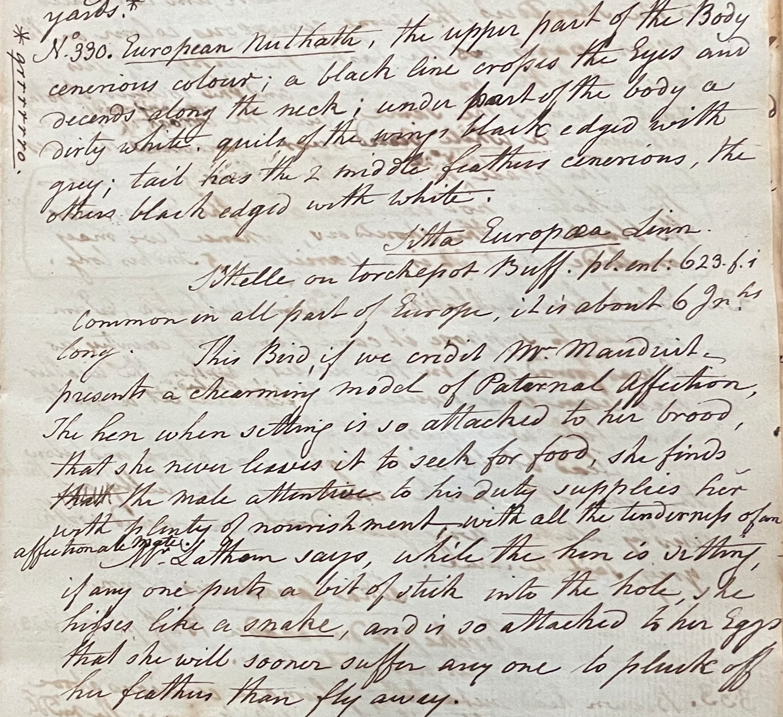 yards.*
* grrrrrro.
No. 330. European Nuthath, the upper part of the Body
cenerious colour; a black line crosses the Eyes and
decends along the neck; under part of the body a
dirty white. quils of the wings black edged with
grey; tail has the 2 middle feathers cenerious, the
others black edged with white.
Sitta Europæa Linn.
Sittelle ou torchepot Buff. pl. enl. 623. f. 1
common in all part of Europe, it is about 6 Inchs
long. This Bird, if we credit Mr. Mauduit,
presents a chearming model of Paternal Affection,
The hen when sitting is so attached to her brood,
that she never leaves it to seek for food, she finds
the male attentive to his duty supplies her
with plenty of nourishment, with all the tenderness of an
affectionate mate.
Mr. Latham says, while the hen is sitting,
if any one puts a bit of stick into the hole, she
hisses like a snake, and is so attached to her Eggs
that she will sooner suffer any one to pluck off
her feathers than fly away.